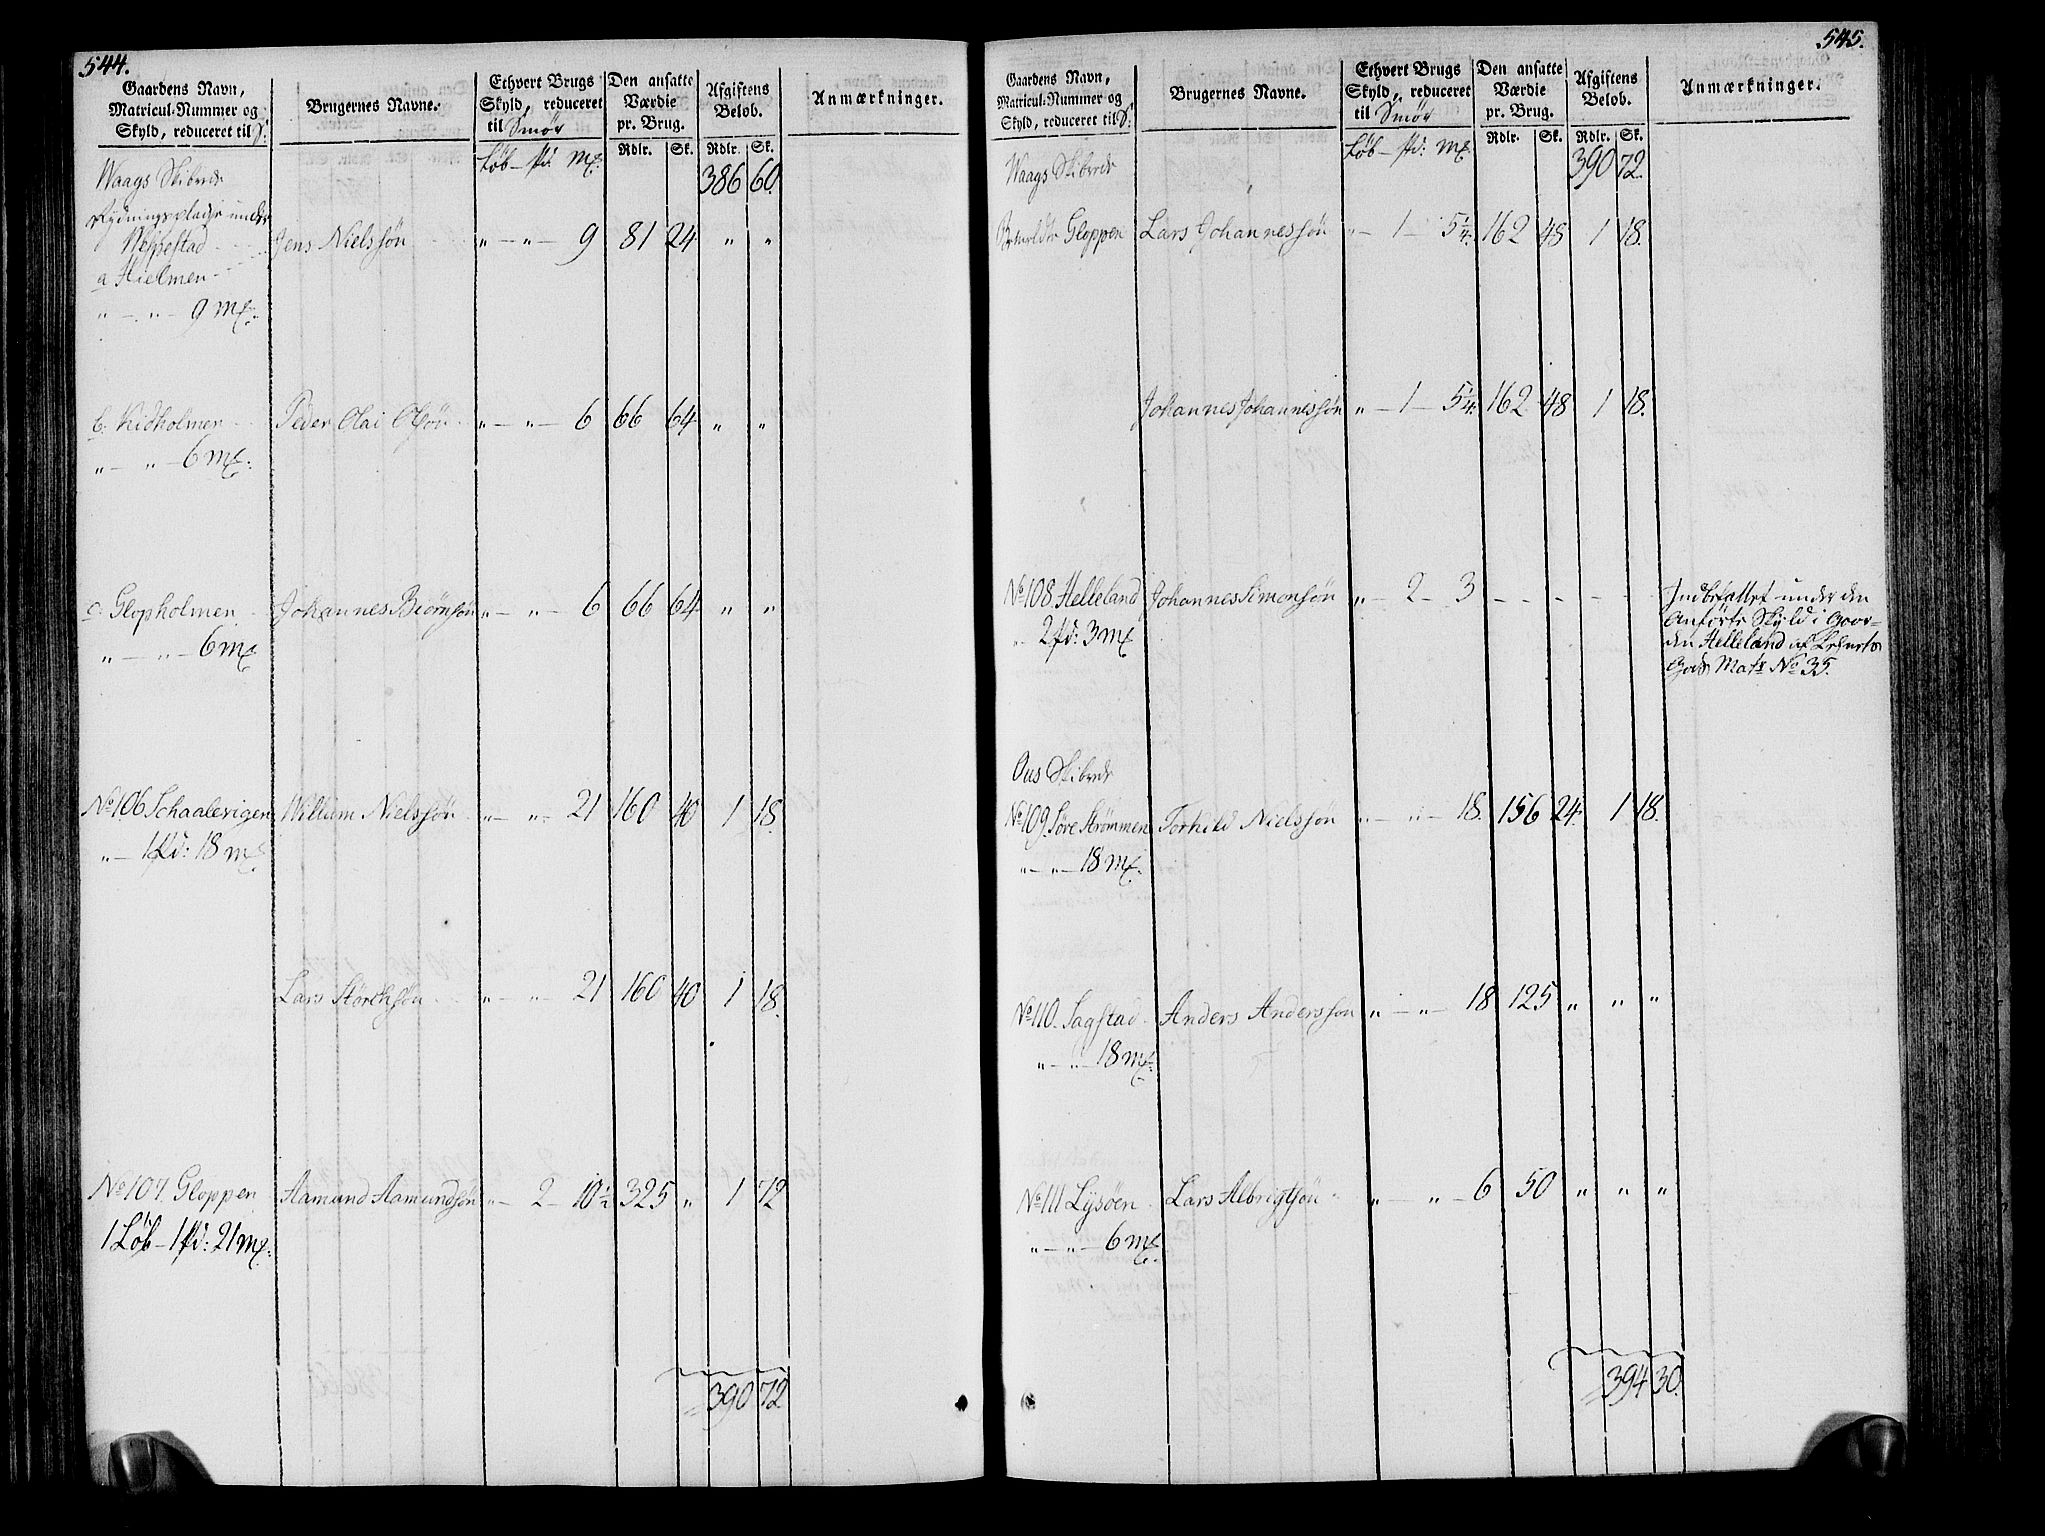 544.
Gaardens Navn, Matricul-Nummer og Skyld, reduceret til S:
Brugernes Navne.
Ethvert Brugs Skyld, reduceret til Smør
Den ansatte Værdie pr. Brug.
Afgiftens Beløb.
Anmærkninger.
Løb – pd: m&: Rdlr. Sk. Rdlr. Sk.
Waags Skibrede 386 60.
Rydningspladse under
Weppestad
a Hielmen Jens Nielssøn " – " – 9 81 24 " "
" – " – 9 m&:
b. Kidholmen Peder Olai Olsøn " – " – 6 66 64 " "
" – " – 6 m&:
c. Glopholmen Johannes Biørnsøn " – " – 6 66 64 " "
" – " – 6 m&
No 106 Schaalevigen Willum Nielssøn " – " – 21 160 40 1 18.
" – 1 pd: 18 m&
Lars Størchsøn " – " – 21 160 40 1 18.
No 107. Gloppen Aamund Aamundsøn " – 2 – 10½ 325 " 1 72
1 Løb – 1 pd: 21 m&:
390 72
545.
Gaardens Navn, Matricul-Nummer og Skyld, reduceret til S:
Brugernes Navne.
Ethvert Brugs Skyld, reduceret til Smør
Den ansatte Værdie pr. Brug.
Afgiftens Beløb.
Anmærkninger.
Løb – pd: m& Rdlr. Sk. Rdlr. Sk.
Waags Skibrede 390 72.
Gloppen Lars Johannessøn " – 1 – 5¼. 162 48 1 18.
Johannes Johannessøn " – 1 – 5¼. 162 48 1 18.
No 108 Helleland Johannes Simonsøn " – 2 – 3 – – – –
" 2 pd: 3 m&
Indbefattet under den
anførte Skyld i Gaar-
den Helleland af
Gods Matr No 35.
Ous Skibrede
No 109. Søre Strømmen Torkild Nielsson " – " – 18. 156 24. 1 18.
" – " – 18 m&.
No 110. Sagstad Anders Andersson " – " – 18 125 " " "
" – " – 18 m&:
No 111 Lysøen Lars Albrigtsøn " " – 6 50 " " "
" – " – 6 m&
394 30.